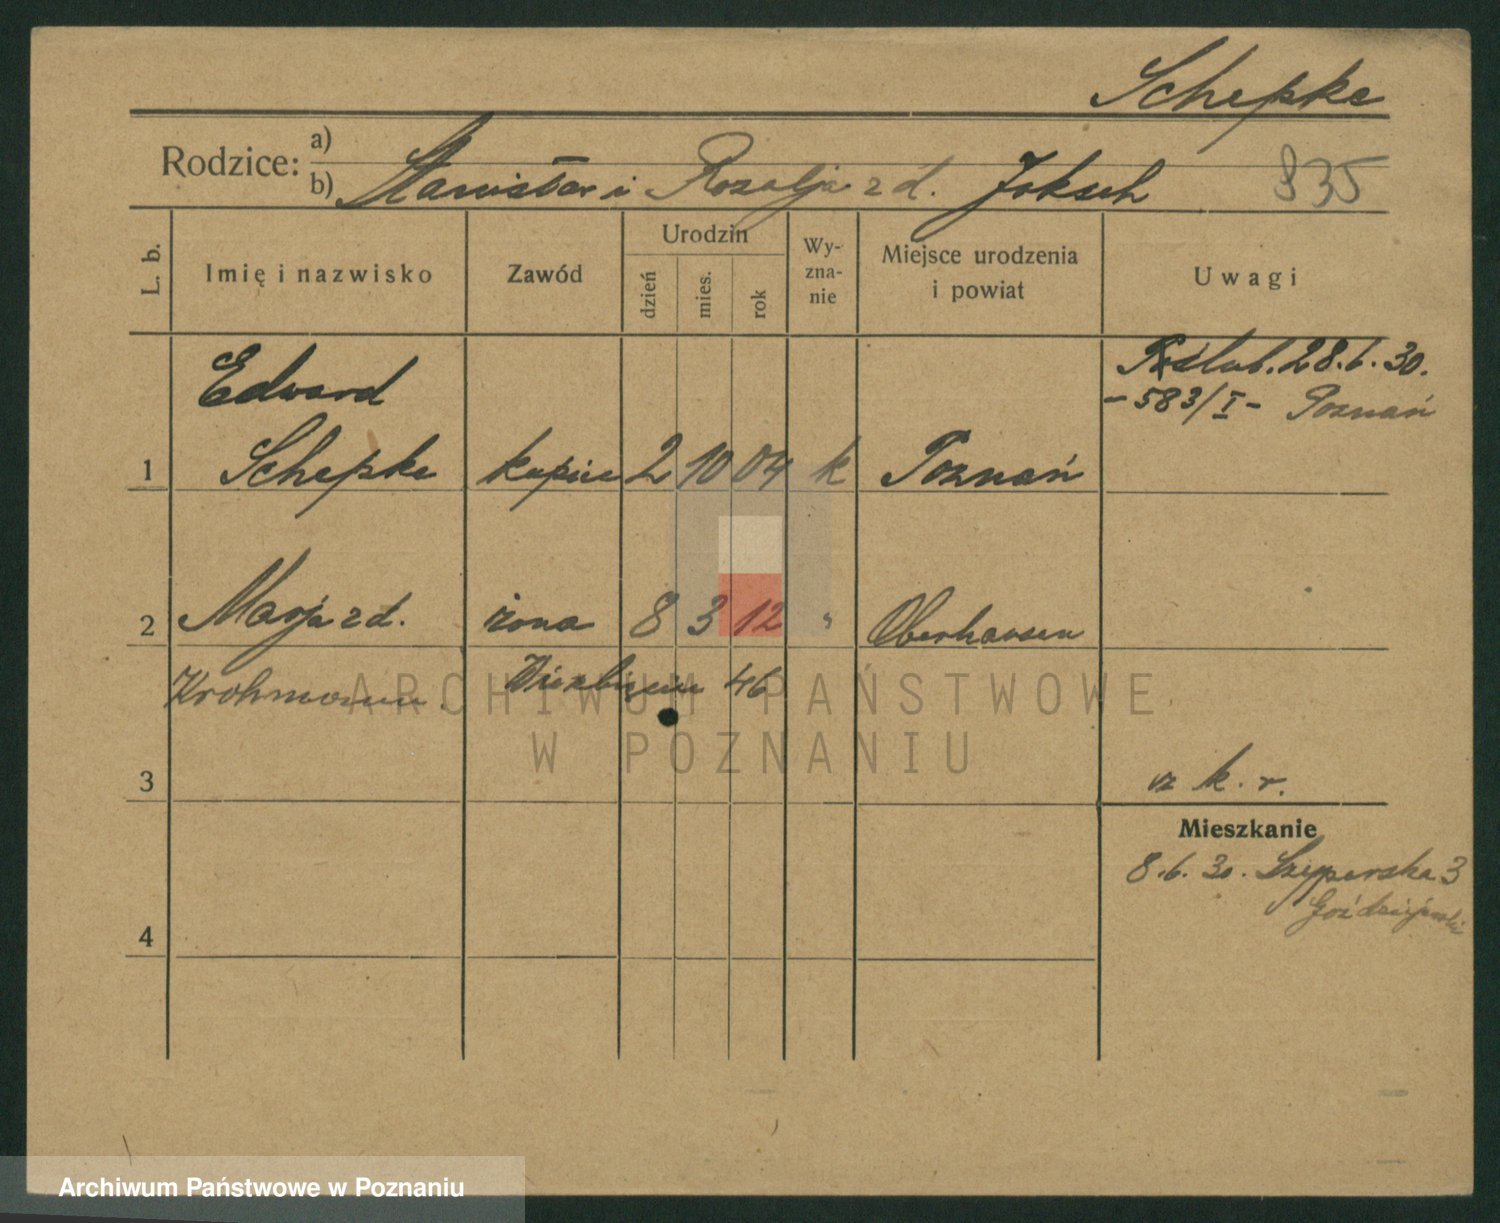 Schepke
Rodzice: a)
b) Stanisław i Rozalja z d. Joksch 835
L. b. Imię i nazwisko Zawód Urodzin dzień mies. rok Wy-zna-nie Miejsce urodzenia i powiat Uwagi
Edward ślub. 28.6.30.
-583/I- Poznań
1 Schepke kupiec 2 10 04 k Poznań
2 Marja z d. żona 8 3 12 " Oberhausen
46
3 k. r.
Mieszkanie
8.6.30. Szyperska 3
4
ARCHIWUM PAŃSTWOWE
W POZNANIU
Archiwum Państwowe w Poznaniu